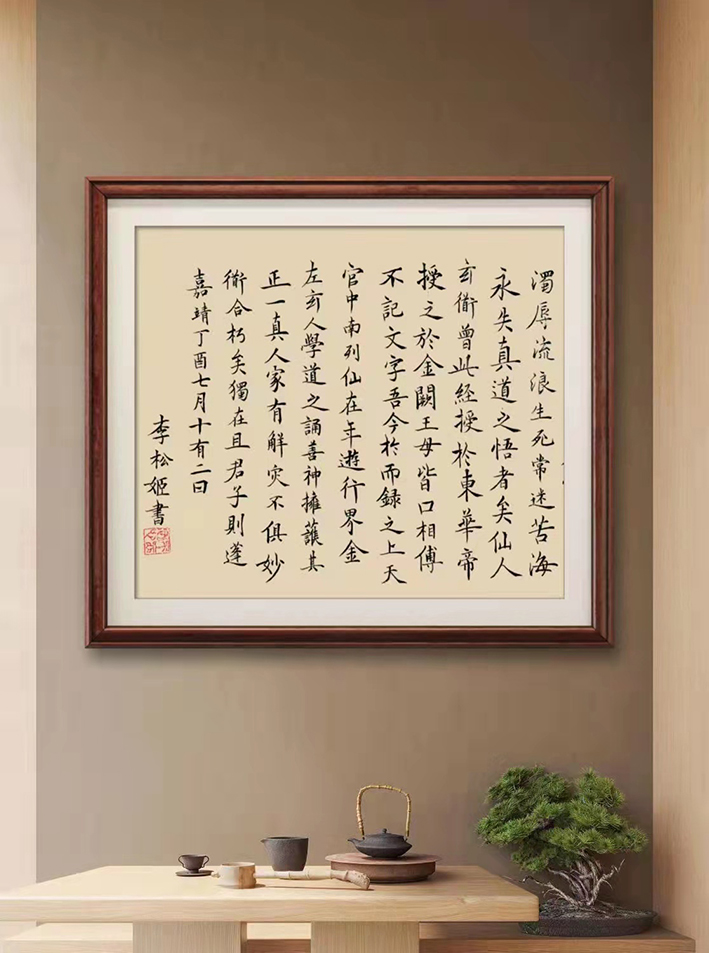 濁辱流浪生死常迷苦海
永失真道之悟者矣仙人
玄衛曾此経授於東華帝
授之於金闕王母皆口相傅
不記文字吾今於而録之上天
官中南列仙在年遊行界金
左玄人學道之誦善神擁護其
正一真人家有解灾不俱妙
衛合朽矣獨在且君子則蓬
嘉靖丁酉七月十有二日
李松姬書